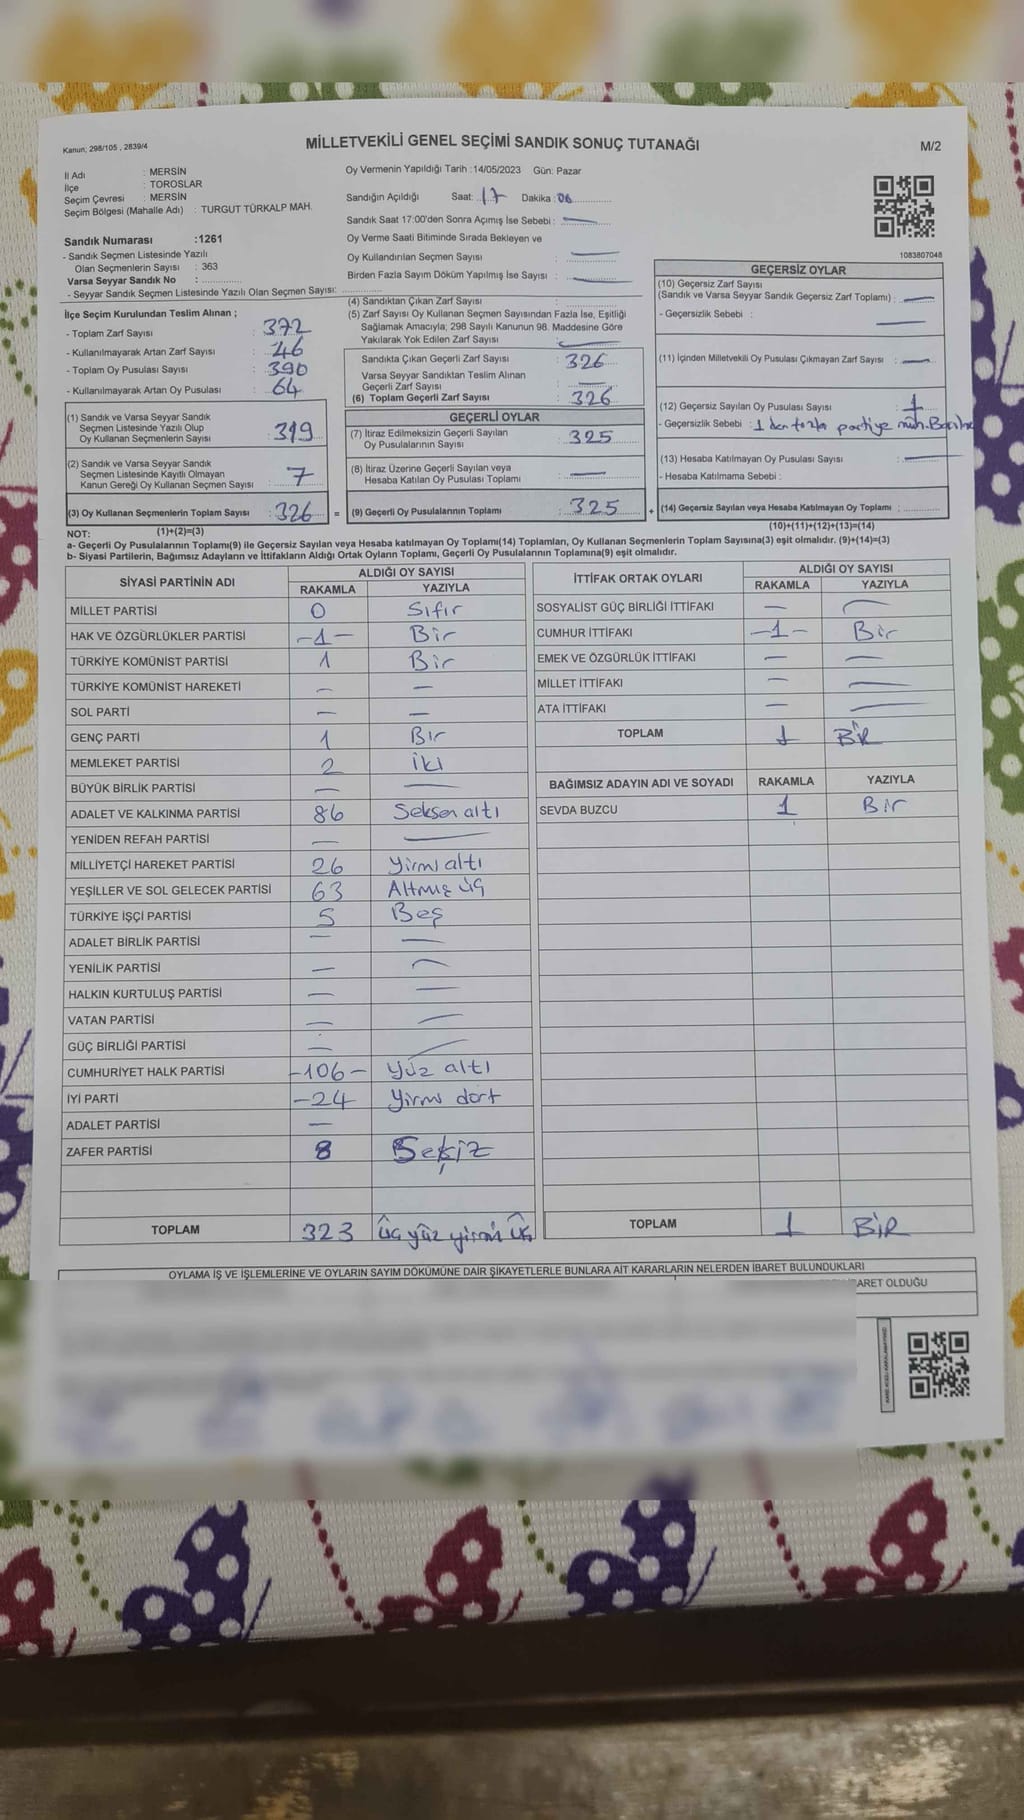 Kanun; 298/105 , 2839/4
MİLLETVEKİLİ GENEL SEÇİMİ SANDIK SONUÇ TUTANAĞI
M/2
İl Adı : MERSİN
İlçe : TOROSLAR
Seçim Çevresi : MERSİN
Seçim Bölgesi (Mahalle Adı) : TURGUT TÜRKALP MAH.
Oy Vermenin Yapıldığı Tarih :14/05/2023 Gün: Pazar
Sandığın Açıldığı Saat: 17 Dakika: 06
Sandık Saat 17:00'den Sonra Açımış İse Sebebi : —
Oy Verme Saati Bitiminde Sırada Bekleyen ve
Oy Kullandırılan Seçmen Sayısı : —
Birden Fazla Sayım Döküm Yapılmış İse Sayısı : —
Sandık Numarası :1261
- Sandık Seçmen Listesinde Yazılı
Olan Seçmenlerin Sayısı : 363
Varsa Seyyar Sandık No :
- Seyyar Sandık Seçmen Listesinde Yazılı Olan Seçmen Sayısı:
1083807048
İlçe Seçim Kurulundan Teslim Alınan ;
- Toplam Zarf Sayısı : 372
- Kullanılmayarak Artan Zarf Sayısı : 46
- Toplam Oy Pusulası Sayısı : 390
- Kullanılmayarak Artan Oy Pusulası : 64
(1) Sandık ve Varsa Seyyar Sandık
Seçmen Listesinde Yazılı Olup
Oy Kullanan Seçmenlerin Sayısı : 319
(2) Sandık ve Varsa Seyyar Sandık
Seçmen Listesinde Kayıtlı Olmayan
Kanun Gereği Oy Kullanan Seçmen Sayısı : 7
(3) Oy Kullanan Seçmenlerin Toplam Sayısı : 326 =
(1)+(2)=(3)
(4) Sandıktan Çıkan Zarf Sayısı :
(5) Zarf Sayısı Oy Kullanan Seçmen Sayısından Fazla İse, Eşitliği
Sağlamak Amacıyla; 298 Sayılı Kanunun 98. Maddesine Göre
Yakılarak Yok Edilen Zarf Sayısı : —
Sandıkta Çıkan Geçerli Zarf Sayısı : 326
Varsa Seyyar Sandıktan Teslim Alınan
Geçerli Zarf Sayısı : —
(6) Toplam Geçerli Zarf Sayısı : 326
GEÇERLİ OYLAR
(7) İtiraz Edilmeksizin Geçerli Sayılan
Oy Pusulasının Sayısı : 325
(8) İtiraz Üzerine Geçerli Sayılan veya
Hesaba Katılan Oy Pusulası Toplamı : —
(9) Geçerli Oy Pusulalarının Toplamı : 325 +
GEÇERSİZ OYLAR
(10) Geçersiz Zarf Sayısı
(Sandık ve Varsa Seyyar Sandık Geçersiz Zarf Toplamı) : —
- Geçersizlik Sebebi : —
(11) İçinden Milletvekili Oy Pusulası Çıkmayan Zarf Sayısı : —
(12) Geçersiz Sayılan Oy Pusulası Sayısı : 1
- Geçersizlik Sebebi : 1 den fazla partiye müh.
(13) Hesaba Katılmayan Oy Pusulası Sayısı : —
- Hesaba Katılmama Sebebi :
(14) Geçersiz Sayılan veya Hesaba Katılmayan Oy Toplamı :
(10)+(11)+(12)+(13)=(14)
NOT:
a- Geçerli Oy Pusulalarının Toplamı(9) ile Geçersiz Sayılan veya Hesaba katılmayan Oy Toplamı(14) Toplamları, Oy Kullanan Seçmenlerin Toplam Sayısına(3) eşit olmalıdır. (9)+(14)=(3)
b- Siyasi Partilerin, Bağımsız Adayların ve İttifakların Aldığı Ortak Oyların Toplamı, Geçerli Oy Pusulalarının Toplamına(9) eşit olmalıdır.
SİYASİ PARTİNİN ADI ALDIĞI OY SAYISI
RAKAMLA YAZIYLA
MİLLET PARTİSİ 0 Sıfır
HAK VE ÖZGÜRLÜKLER PARTİSİ -1- Bir
TÜRKİYE KOMÜNİST PARTİSİ 1 Bir
TÜRKİYE KOMÜNİST HAREKETİ — —
SOL PARTİ — —
GENÇ PARTİ 1 Bir
MEMLEKET PARTİSİ 2 iki
BÜYÜK BİRLİK PARTİSİ — —
ADALET VE KALKINMA PARTİSİ 86 Seksen altı
YENİDEN REFAH PARTİSİ — —
MİLLİYETÇİ HAREKET PARTİSİ 26 Yirmi altı
YEŞİLLER VE SOL GELECEK PARTİSİ 63 Altmış üç
TÜRKİYE İŞÇİ PARTİSİ 5 Beş
ADALET BİRLİK PARTİSİ — —
YENİLİK PARTİSİ — —
HALKIN KURTULUŞ PARTİSİ — —
VATAN PARTİSİ — —
GÜÇ BİRLİĞİ PARTİSİ — —
CUMHURİYET HALK PARTİSİ -106- Yüz altı
İYİ PARTİ -24 Yirmi dört
ADALET PARTİSİ —
ZAFER PARTİSİ 8 Sekiz
TOPLAM 323 üç yüz yirmi üç
İTTİFAK ORTAK OYLARI ALDIĞI OY SAYISI
RAKAMLA YAZIYLA
SOSYALİST GÜÇ BİRLİĞİ İTTİFAKI — —
CUMHUR İTTİFAKI -1- Bir
EMEK VE ÖZGÜRLÜK İTTİFAKI — —
MİLLET İTTİFAKI — —
ATA İTTİFAKI — —
TOPLAM 1 BİR
BAĞIMSIZ ADAYIN ADI VE SOYADI RAKAMLA YAZIYLA
SEVDA BUZCU 1 Bir
TOPLAM 1 BİR
OYLAMA İŞ VE İŞLEMLERİNE VE OYLARIN SAYIM DÖKÜMÜNE DAİR ŞİKAYETLERLE BUNLARA AİT KARARLARIN NELERDEN İBARET BULUNDUKLARI
ARET OLDUĞU